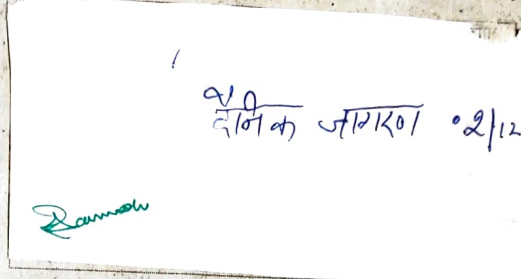 दैनिक जागरण 02/12